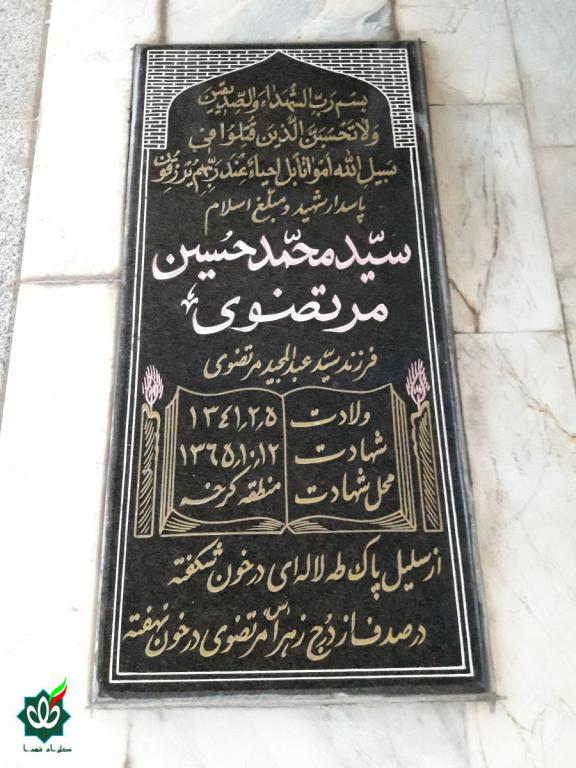 بسم رب الشهداء والصدیقین
ولا تحسبن الذین قتلوا فی
سبیل الله امواتا بل احیاء عند ربهم یرزقون
پاسدار شهید و مبلغ اسلام
سیّد محمّد حسین
مرتضوی
فرزند سیّد عبدالمجید مرتضوی
ولادت ۱۳۴۱٫۲٫۵
شهادت ۱۳۶۵٫۱۰٫۱۲
محل شهادت منطقه کرخه
از سلیل پاک طه لاله ای در خون شکفته
در صدف از دُرج زهرا س مرتضوی در خون نهفته
گلزار شهدا